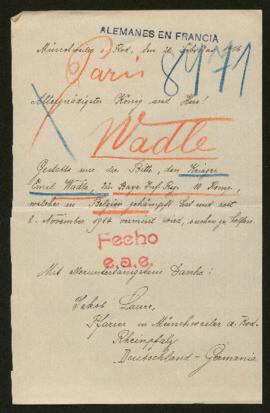 ALEMANES EN FRANCIA
Münchweiler a. Rod., den 20.
Paris
8471
Allergnädigster König und Herr!
Wadle
Gestatte mir die Bitte, den Krieger
Emil Wadle, Bayr. Inf. Reg. 10. Komp.,
welcher in Belgien gekämpft hat und seit
8. November 1914 vermisst wird, suchen zu helfen.
Fecho
e.a.e.
Mit alleruntertänigstem Danke:
Jakob Laux,
Pfarrer in Münchweiler a. Rod.
Rheinpfalz
Deutschland - Germania